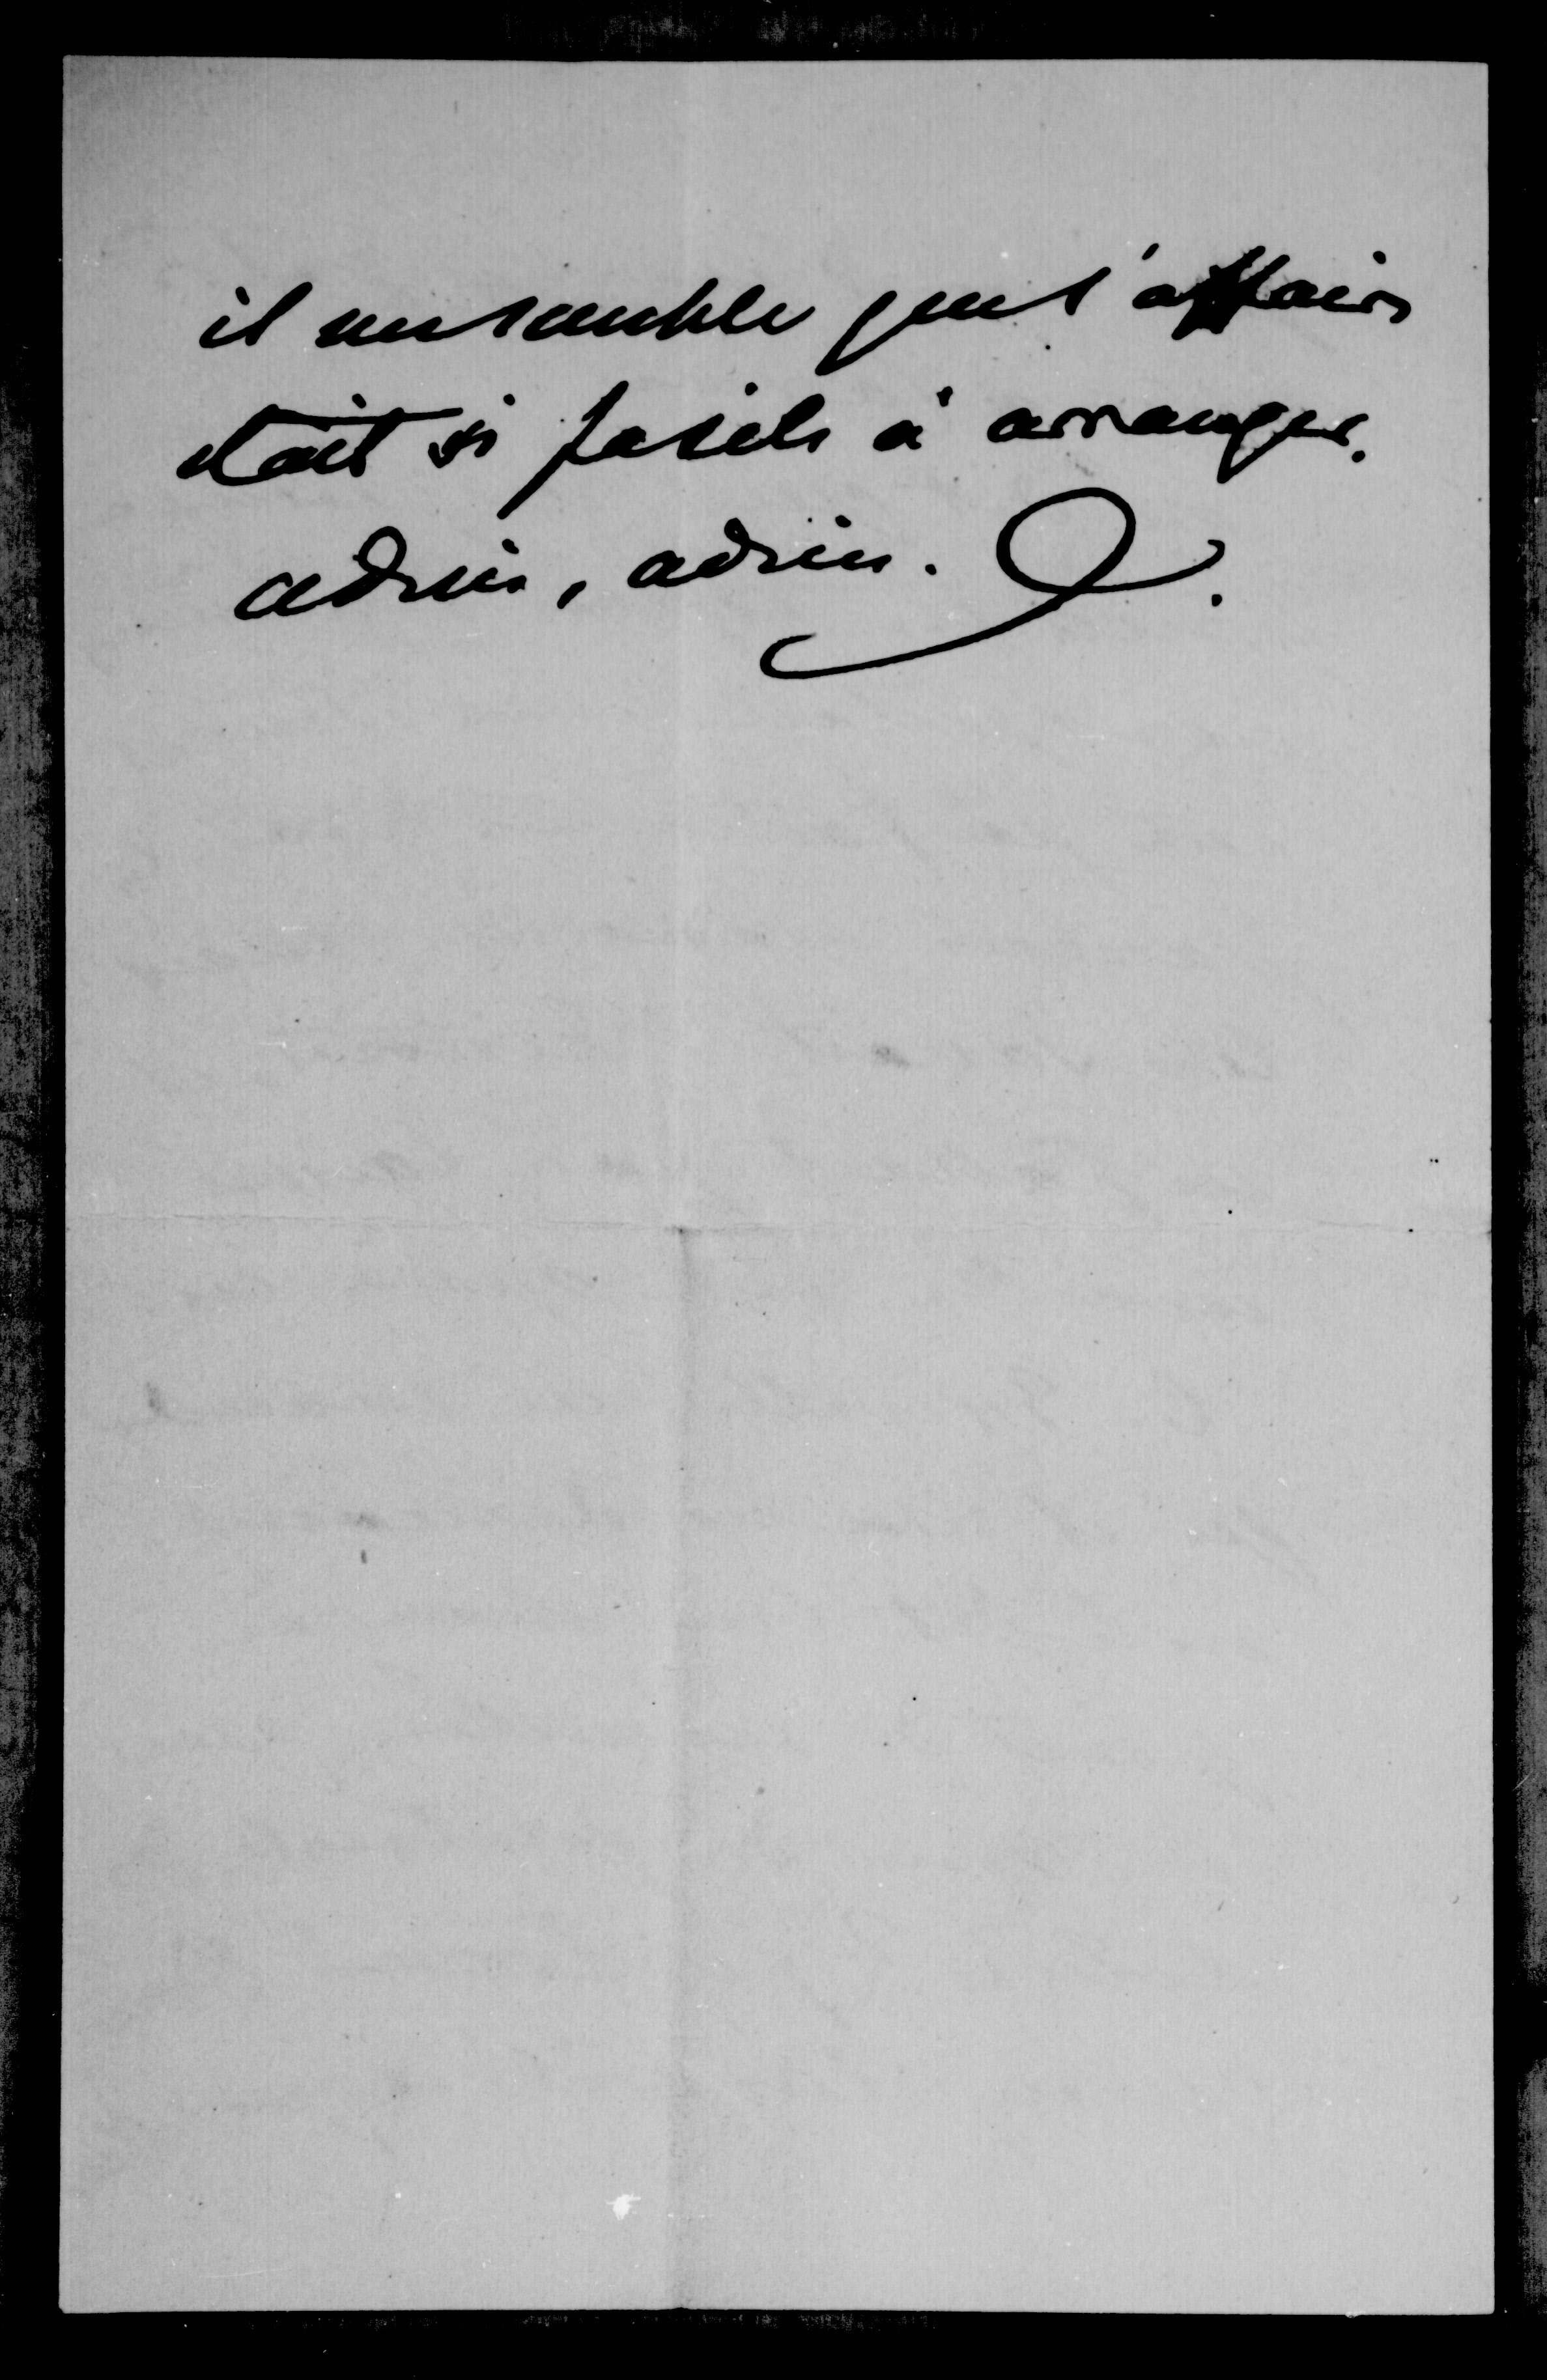 il me semble que l'affaire
était si facile à arranger.
adieu, adieu.